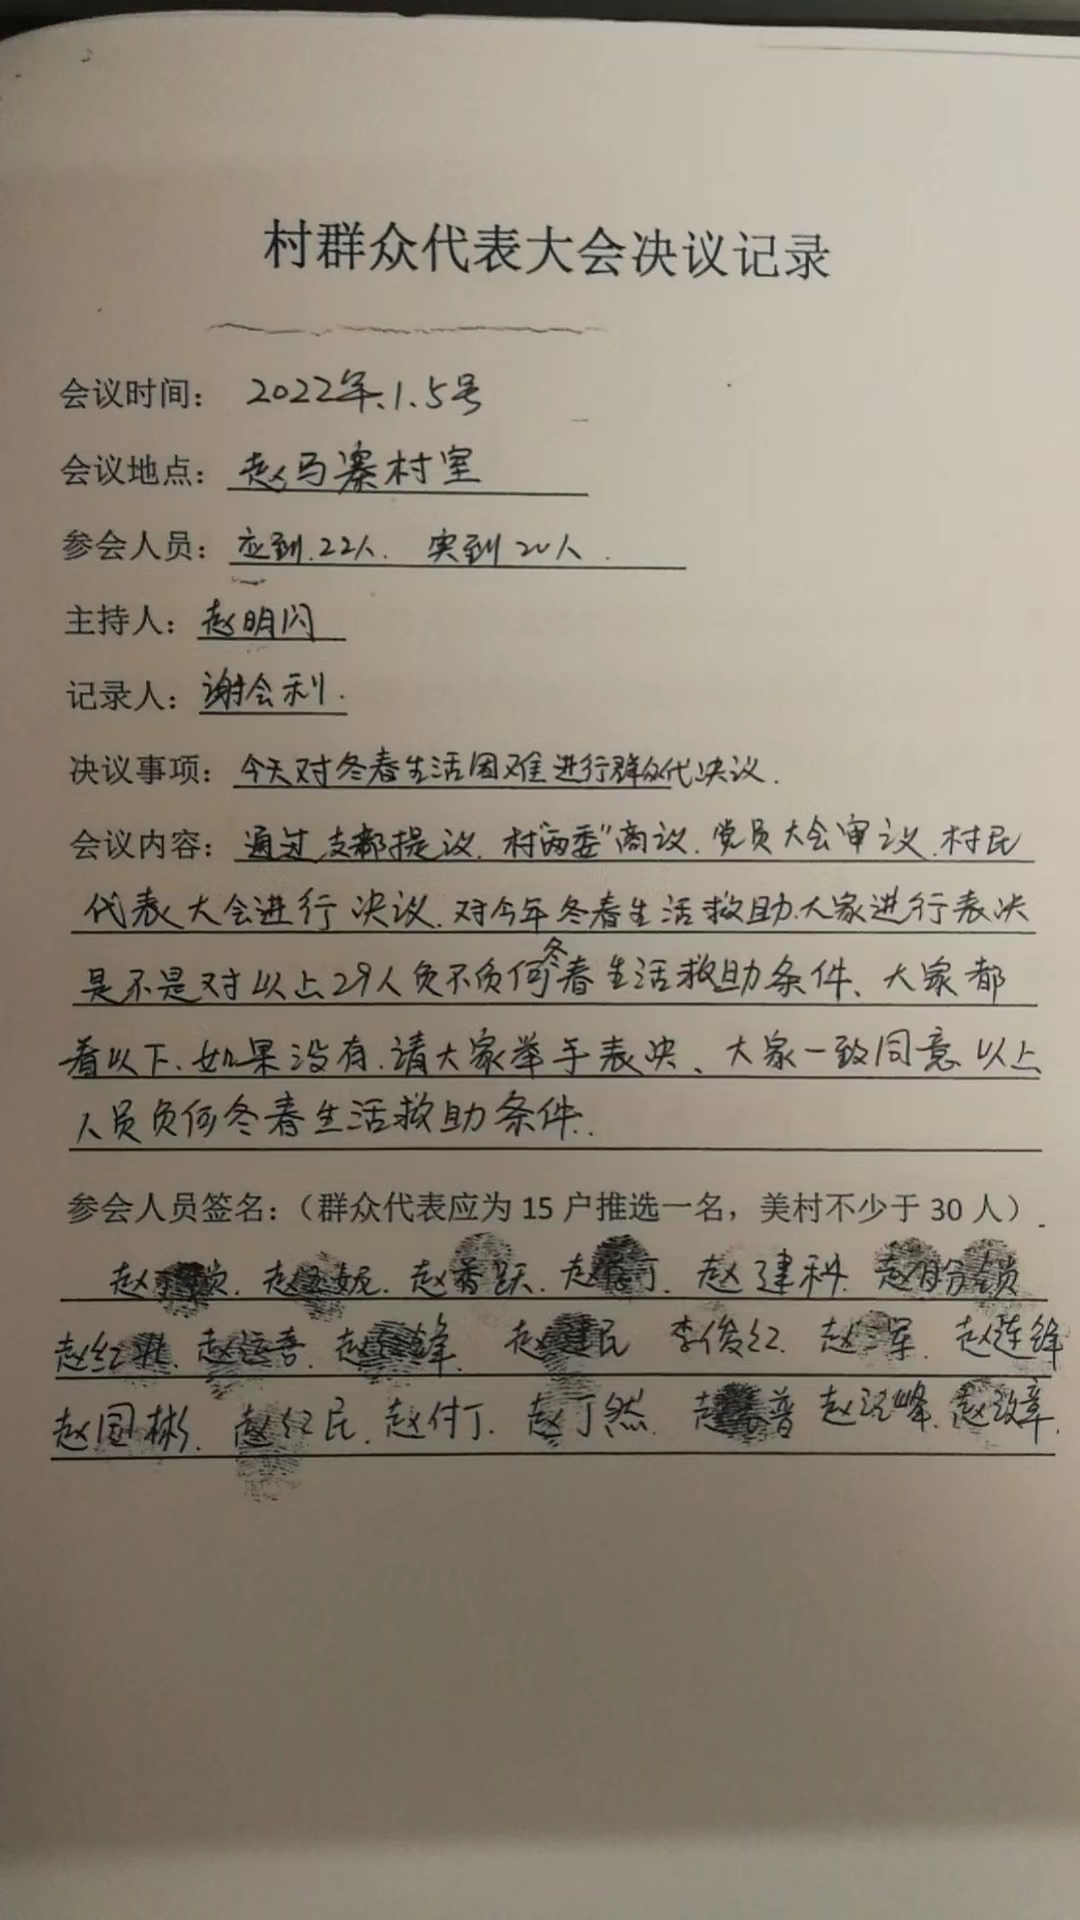 村群众代表大会决议记录
会议时间： 2022年.1.5号
会议地点：赵马寨村室
参会人员：应到.22人. 实到20人.
主持人：赵明闪
记录人：谢会利.
决议事项：今天对冬春生活困难进行群众代决议.
会议内容：通过支部提议.村“两委”商议.党员大会审议.村民
代表大会进行决议.对今年冬春生活救助.大家进行表决
是不是对以上29人负不负何冬春生活救助条件、大家都
看以下.如果没有.请大家举手表决、大家一致同意以上
人员负何冬春生活救助条件.
参会人员签名：（群众代表应为 15 户推选一名，美村不少于 30 人）
赵 赵 妮. 赵 跃. 赵 赵建科. 赵 锁
赵红 赵运喜. 赵 锋. 赵建民 李俊红. 赵二军. 赵连锋
赵国彬. 赵红民. 赵付丁. 赵丁然. 赵 普 赵 峰. 赵改章.